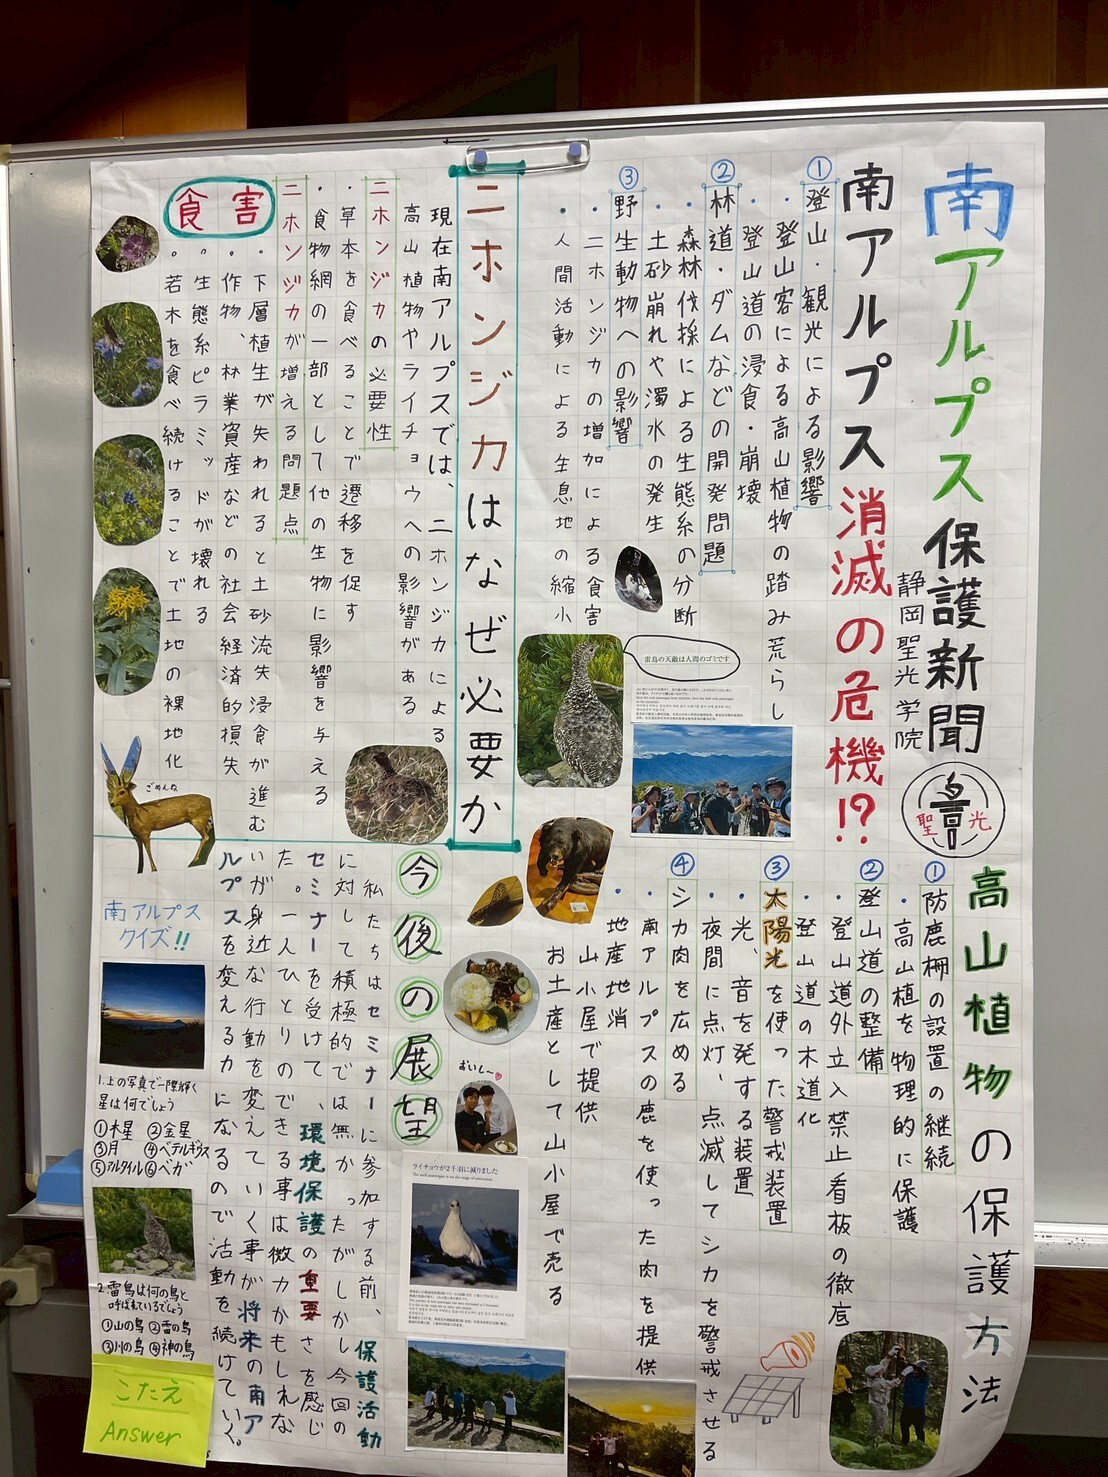 南アルプス保護新聞
静岡聖光学院
聖光
南アルプス消滅の危機!?
①登山・観光による影響
・登山客による高山植物の踏み荒らし
・登山道の浸食・崩壊
②林道・ダムなどの開発問題
・森林伐採による生態系の分断
・土砂崩れや濁水の発生
③野生動物への影響
・ニホンジカの増加による食害
・人間活動による生息地の縮小
雷鳥の天敵は人間のゴミです
ニホンジカはなぜ必要か
現在南アルプスでは、ニホンジカによる
高山植物やライチョウへの影響がある
ニホンジカの必要性
・草本を食べることで遷移を促す
・食物網の一部として他の生物に影響を与える
ニホンジカが増える問題点
・下層植生が失われると土砂流失、浸食が進む
・作物、林業資産などの社会経済的損失
・生態系ピラミッドが壊れる
・若木を食べ続けることで土地の裸地化
食害
ごめんね
高山植物の保護方法
①防鹿柵の設置の継続
・高山植を物理的に保護
②登山道の整備
・登山道外立入禁止看板の徹底
・登山道の木道化
③太陽光を使った警戒装置
・光、音を発する装置
・夜間に点灯、点滅してシカを警戒させる
④シカ肉を広める
・南アルプスの鹿を使った肉を提供
・地産地消
山小屋で提供
お土産として山小屋で売る
おいし〜
ライチョウが2千羽に減りました
今後の展望
私たちはセミナーに参加する前、保護活動
に対して積極的では無かったがしかし今回の
セミナーを受けて、環境保護の重要さを感じ
た。一人ひとりのできる事は微力かもしれな
いが身近な行動を変えていく事が将来の南ア
ルプスを変える力になるので活動を続けていく。
南アルプス
クイズ!!
1.上の写真で一際輝く
星は何でしょう
①木星 ②金星
③月 ④ベテルギウス
⑤アルタイル ⑥ベガ
2.雷鳥は何の鳥と
呼ばれているでしょう
①山の鳥 ②雷の鳥
③川の鳥 ④神の鳥
こたえ
Answer